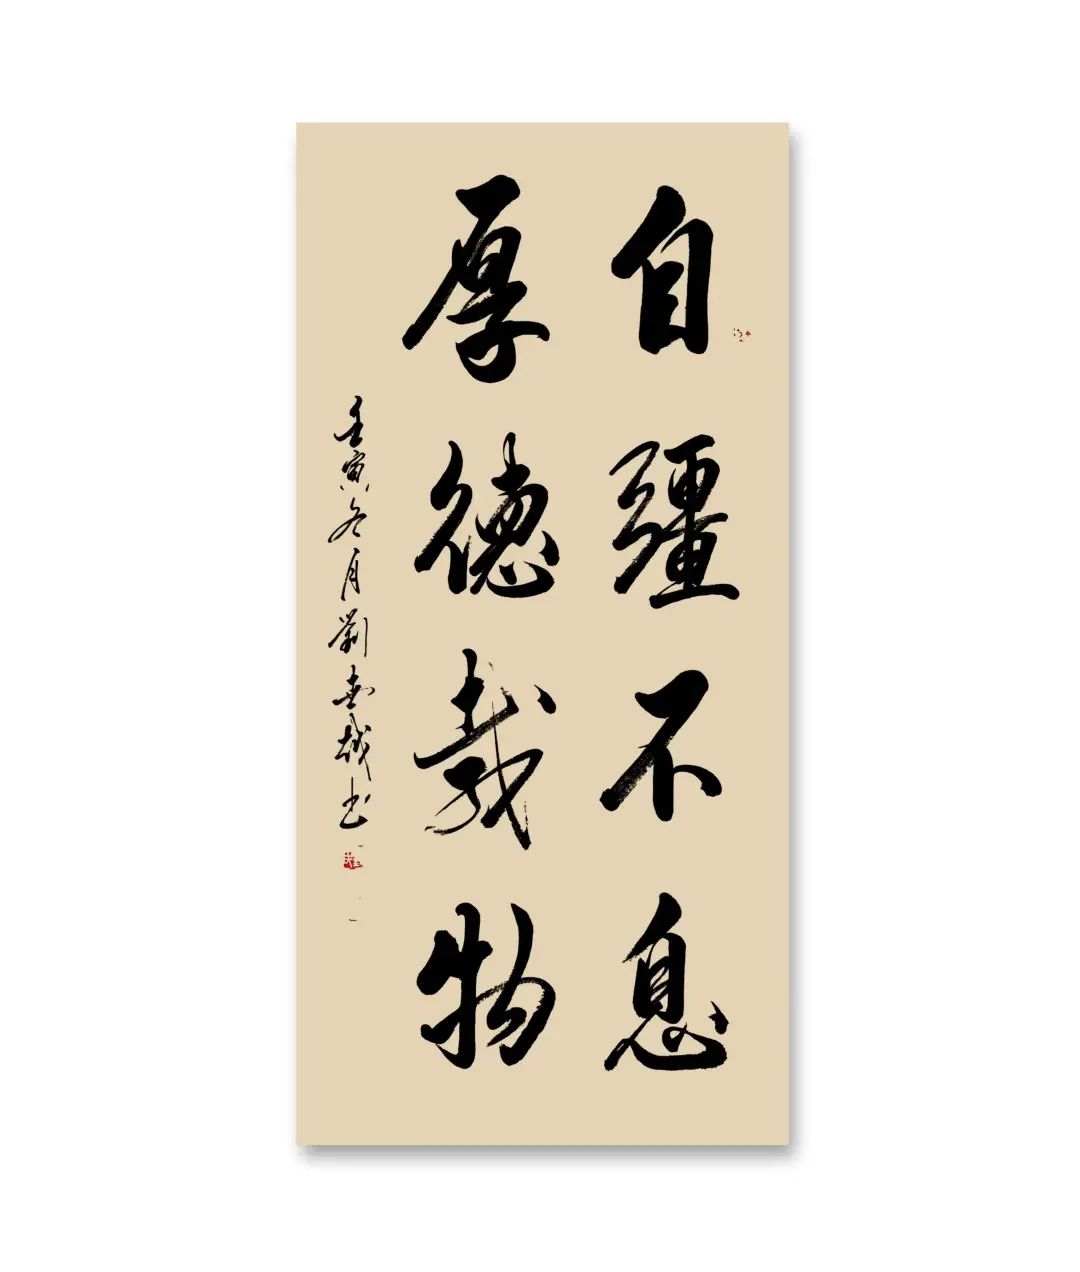 自疆不息
厚德载物
壬寅冬月劉書